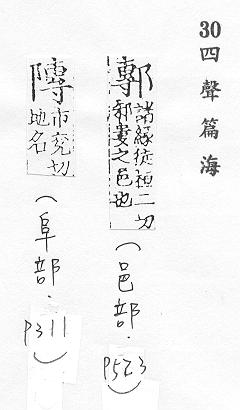 30 四聲篇海
鄟
諸緣徒桓二切
邾婁之邑也
(邑部.
P523)
市兖切
地名
(阜部.
P311)